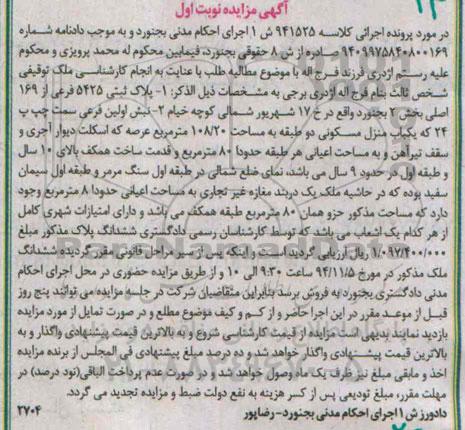 ۲۳
آگهی مزایده نوبت اول
در مورد پرونده اجرائی کلاسه ۹۴۱۵۲۵ ش ۱ اجرای احکام مدنی بجنورد و به موجب دادنامه شماره
۹۴۰۹۹۷۵۸۴۰۸۰۰۱۶۹ صادره از ش ۸ حقوقی بجنورد، فیمابین محکوم له محمد پرویزی و محکوم
علیه رستم اژدری فرزند فرج اله با موضوع مطالبه طلب با عنایت به انجام کارشناسی ملک توقیفی
شخص ثالث بنام فرج اله اژدری برجی به مشخصات ذیل الذکر: ۱- پلاک ثبتی ۵۴۲۵ فرعی از ۱۶۹
اصلی بخش ۲ بجنورد واقع در خ ۱۷ شهریور شمالی کوچه خیام ۲- نبش اولین فرعی سمت چپ پ
۲۴ که یکباب منزل مسکونی دو طبقه به مساحت ۱۰۸/۲۰ مترمربع عرصه که اسکلت دیوار آجری و
سقف تیرآهن و به مساحت اعیانی هر طبقه حدودا ۸۰ مترمربع و قدمت ساخت همکف بالای ۱۰ سال
و طبقه اول در حدود ۹ سال می باشد، نمای ضلع شمالی در طبقه اول سنگ مرمر و طبقه اول سیمان
سفید بوده که در حاشیه ملک یک دربند مغازه غیر تجاری به مساحت اعیانی حدودا ۸ مترمربع وجود
دارد که مساحت مذکور جزو همان ۸۰ مترمربع طبقه همکف می باشد و دارای امتیازات شهری کامل
از هر کدام یک انشعاب می باشد که توسط کارشناسان رسمی دادگستری ششدانگ پلاک مذکور مبلغ
۱/۰۹۷/۴۰۰/۰۰۰ ریال ارزیابی گردیده است و اینکه پس از سیر مراحل قانونی مقرر گردیده ششدانگ
ملک مذکور در مورخ ۹۴/۱۱/۵ ساعت ۹:۳۰ الی ۱۰ و از طریق مزایده حضوری در محل اجرای احکام
مدنی دادگستری بجنورد به فروش برسد بنابراین متقاضیان شرکت در جلسه مزایده می توانند پنج روز
قبل از موعد مقرر در این اجرا حاضر و از کم و کیف موضوع مطلع و در صورت تمایل از مورد مزایده
بازدید نمایند بدیهی است مزایده از قیمت کارشناسی شروع و به بالاترین قیمت پیشنهادی واگذار و به
بالاترین قیمت پیشنهادی واگذار خواهد شد و ده درصد مبلغ پیشنهادی فی المجلس از برنده مزایده
اخذ و مابقی مبلغ نیز ظرف یک ماه وصول خواهد شد و در صورت عدم پرداخت الباقی(نود درصد) در
مهلت مقرر، مبلغ تودیعی پس از کسر هزینه به نفع دولت ضبط و مزایده تجدید می گردد.
دادورز ش ۱ اجرای احکام مدنی بجنورد- رضاپور ۲۷۰۴